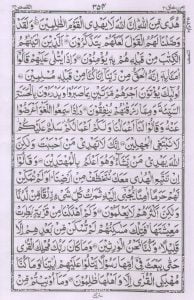 القصص ٢٨ ٣٥٤
هُدًى مِّنَ اللّٰهِ اِنَّ اللّٰهَ لَا يَهْدِى الْقَوْمَ الظّٰلِمِيْنَ وَلَقَدْ
وَصَّلْنَا لَهُمُ الْقَوْلَ لَعَلَّهُمْ يَتَذَكَّرُوْنَ اَلَّذِيْنَ اٰتَيْنٰهُمُ
الْكِتٰبَ مِنْ قَبْلِهٖ هُمْ بِهٖ يُؤْمِنُوْنَ وَاِذَا يُتْلٰى عَلَيْهِمْ قَالُوْۤا
اٰمَنَّا بِهٖۤ اِنَّهُ الْحَقُّ مِنْ رَّبِّنَاۤ اِنَّا كُنَّا مِنْ قَبْلِهٖ مُسْلِمِيْنَ
اُولٰٓئِكَ يُؤْتَوْنَ اَجْرَهُمْ مَّرَّتَيْنِ بِمَا صَبَرُوْا وَيَدْرَءُوْنَ بِالْحَسَنَةِ
السَّيِّئَةَ وَمِمَّا رَزَقْنٰهُمْ يُنْفِقُوْنَ وَاِذَا سَمِعُوا اللَّغْوَ اَعْرَضُوْا
عَنْهُ وَقَالُوْا لَنَاۤ اَعْمَالُنَا وَلَكُمْ اَعْمَالُكُمْ سَلٰمٌ عَلَيْكُمْ
لَا نَبْتَغِى الْجٰهِلِيْنَ اِنَّكَ لَا تَهْدِىْ مَنْ اَحْبَبْتَ وَلٰكِنَّ
اللّٰهَ يَهْدِىْ مَنْ يَّشَآءُ وَهُوَ اَعْلَمُ بِالْمُهْتَدِيْنَ وَقَالُوْۤا اِنْ
نَّتَّبِعِ الْهُدٰى مَعَكَ نُتَخَطَّفْ مِنْ اَرْضِنَا اَوَلَمْ نُمَكِّنْ
لَّهُمْ حَرَمًا اٰمِنًا يُّجْبٰۤى اِلَيْهِ ثَمَرٰتُ كُلِّ شَىْءٍ رِّزْقًا مِّنْ لَّدُنَّا
وَلٰكِنَّ اَكْثَرَهُمْ لَا يَعْلَمُوْنَ وَكَمْ اَهْلَكْنَا مِنْ قَرْيَةٍ بَطِرَتْ
مَعِيْشَتَهَا فَتِلْكَ مَسٰكِنُهُمْ لَمْ تُسْكَنْ مِّنْ بَعْدِهِمْ اِلَّا
قَلِيْلًا وَكُنَّا نَحْنُ الْوٰرِثِيْنَ وَمَا كَانَ رَبُّكَ مُهْلِكَ الْقُرٰى
حَتّٰى يَبْعَثَ فِىْۤ اُمِّهَا رَسُوْلًا يَّتْلُوْا عَلَيْهِمْ اٰيٰتِنَا وَمَا كُنَّا
مُهْلِكِى الْقُرٰٓى اِلَّا وَاَهْلُهَا ظٰلِمُوْنَ وَمَاۤ اُوْتِيْتُمْ مِّنْ